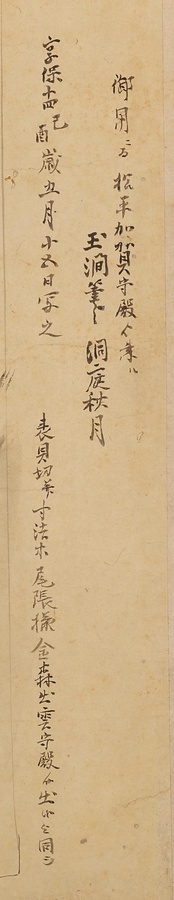 御用ニ而 松平加賀守殿ゟ来ル
玉澗筆 洞庭秋月
享保十四己酉歳五月十五日写之
表具切等寸法ホ尾張様金森出雲守殿ゟ出ル と同シ